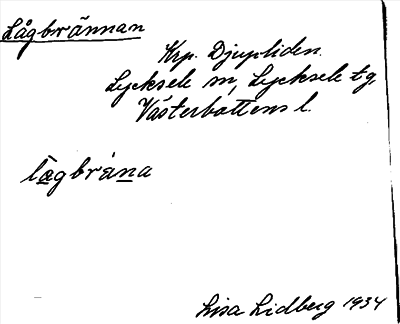 Lågbrännan
Krp. Djupliden.
Lycksele sn, Lycksele tg,
Västerbottens l.
lågbräna
Lisa Lidberg 1934